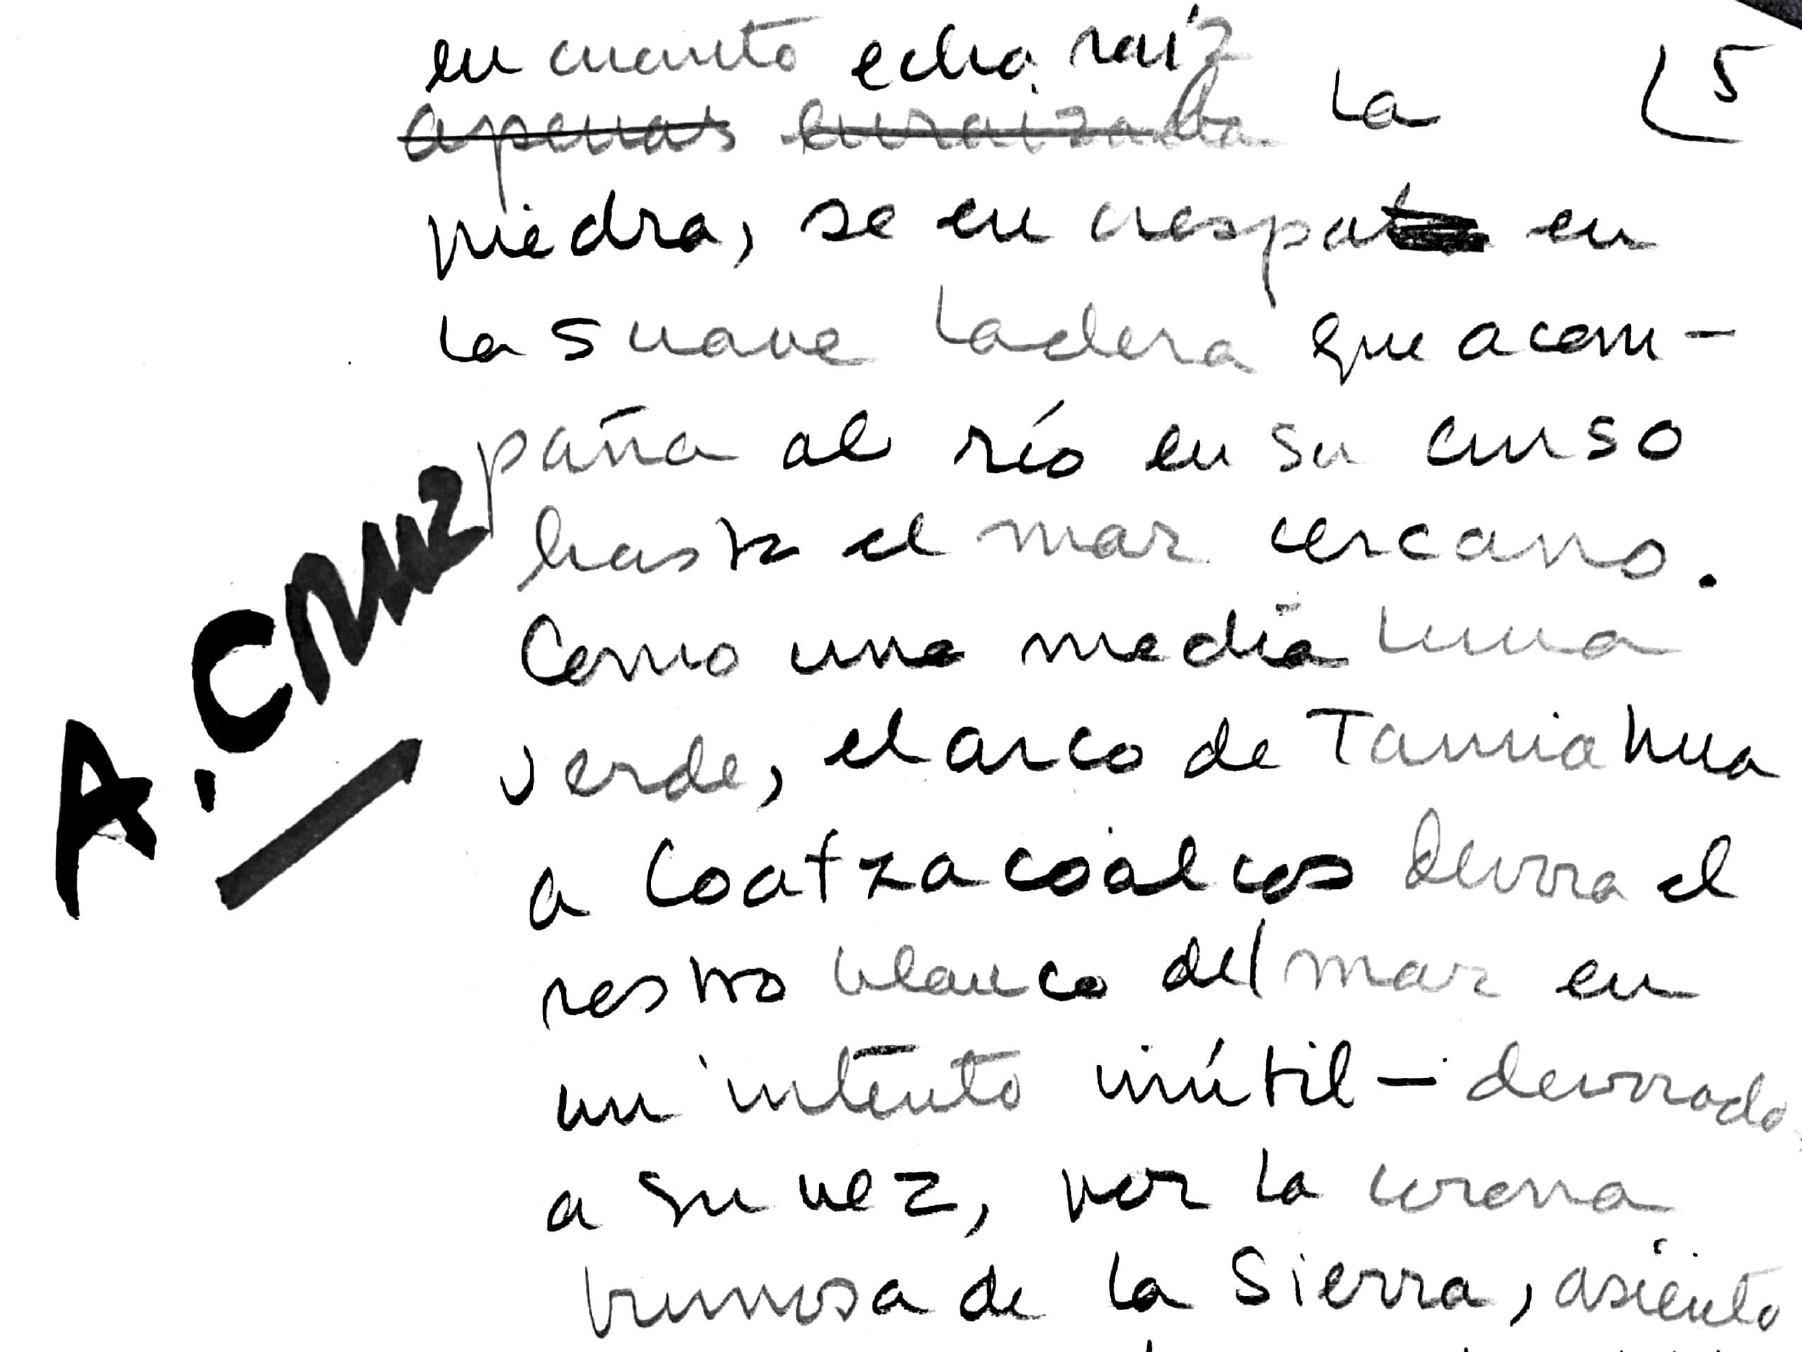 en cuanto echa raíz
apenas enraizada la
5
piedra, se encrespa en
la suave ladera que acom-
paña al río en su curso
hasta el mar cercano.
Como una media luna
verde, el arco de Tamiahua
a Coatzacoalcos devora el
rostro blanco del mar en
un intento inútil — devorado
a su vez, por la corona
brumosa de la Sierra, asiento
A. CRUZ